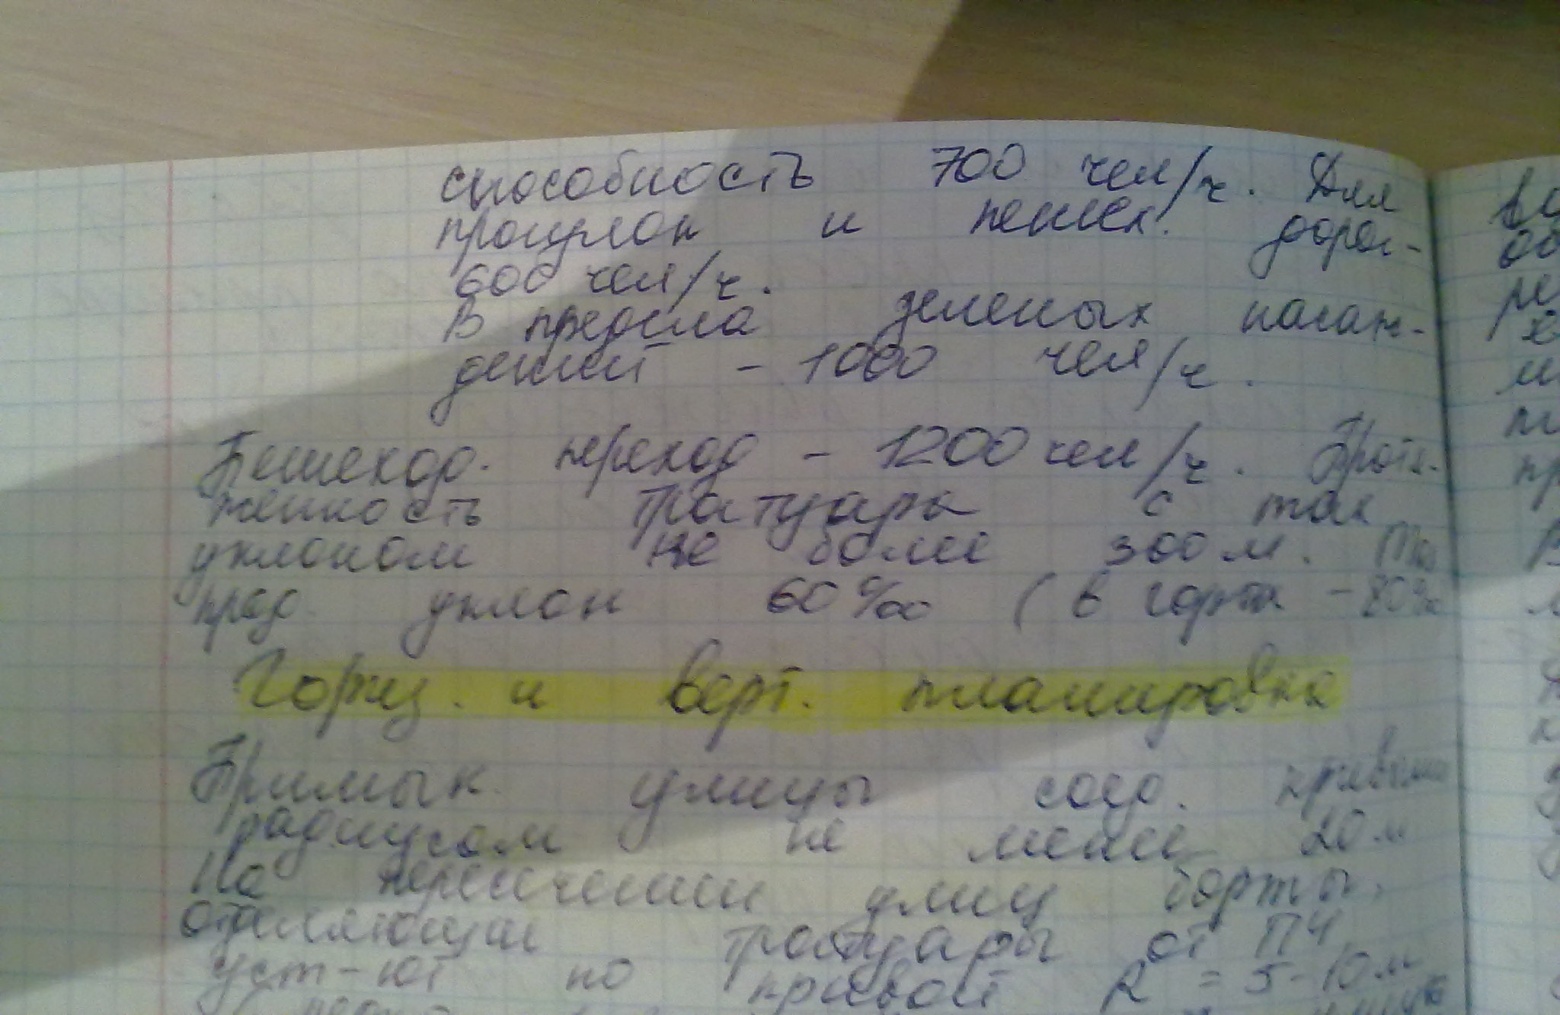 способность 700 чел/ч. Для
прогулок и пешех. дорог-
600 чел/ч.
В предела зеленых насаж-
дений - 1000 чел/ч.
Пешеход. переход - 1200 чел/ч. Протя-
женность тратуара с так
уклоном не более 300 м. Max
прод. уклон 60‰ (в горах - 80‰
Гориз. и верт. планировка
Примык. улицы соед. кривыми
радиусом не менее 20 м
На пересечении улиц борты,
отделяющие тратуары от ПЧ
уст-ют по кривой R = 5-10 м